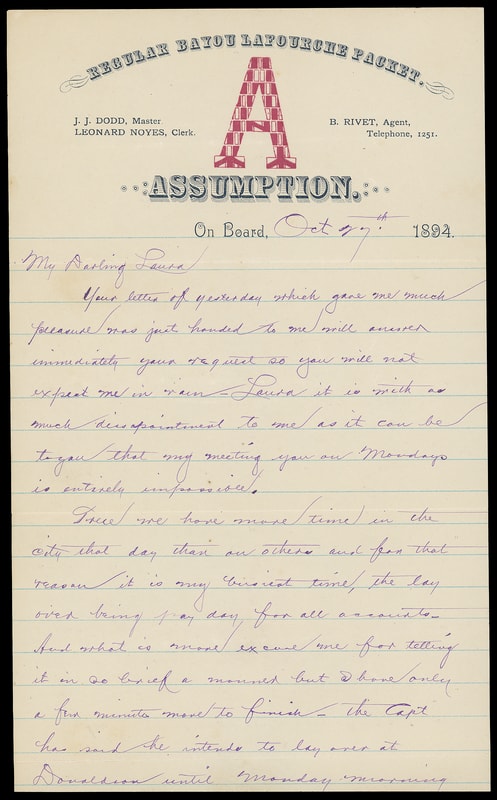 REGULAR BAYOU LAFOURCHE PACKET.
A
J. J. DODD, Master.
LEONARD NOYES, Clerk.
B. RIVET, Agent,
Telephone, 1251.
ASSUMPTION.
On Board, Oct 27th 1894.
My Darling Laura
Your letter of yesterday which gave me much
pleasure was just handed to me will answer
immediately your request so you will not
expect me in vain - Laura it is with as
much dissapointment to me as it can be
to you that my meeting you on Mondays
is entirely impossible.
we have more time in the
city that day than on others and for that
reason it is my busiest time, the lay
over being pay day for all accounts-
And what is more excuse me for telling
it in so brief a manner but I have only
a few minutes more to finish - the Capt
has said he intends to lay over at
Donaldson until Monday morning